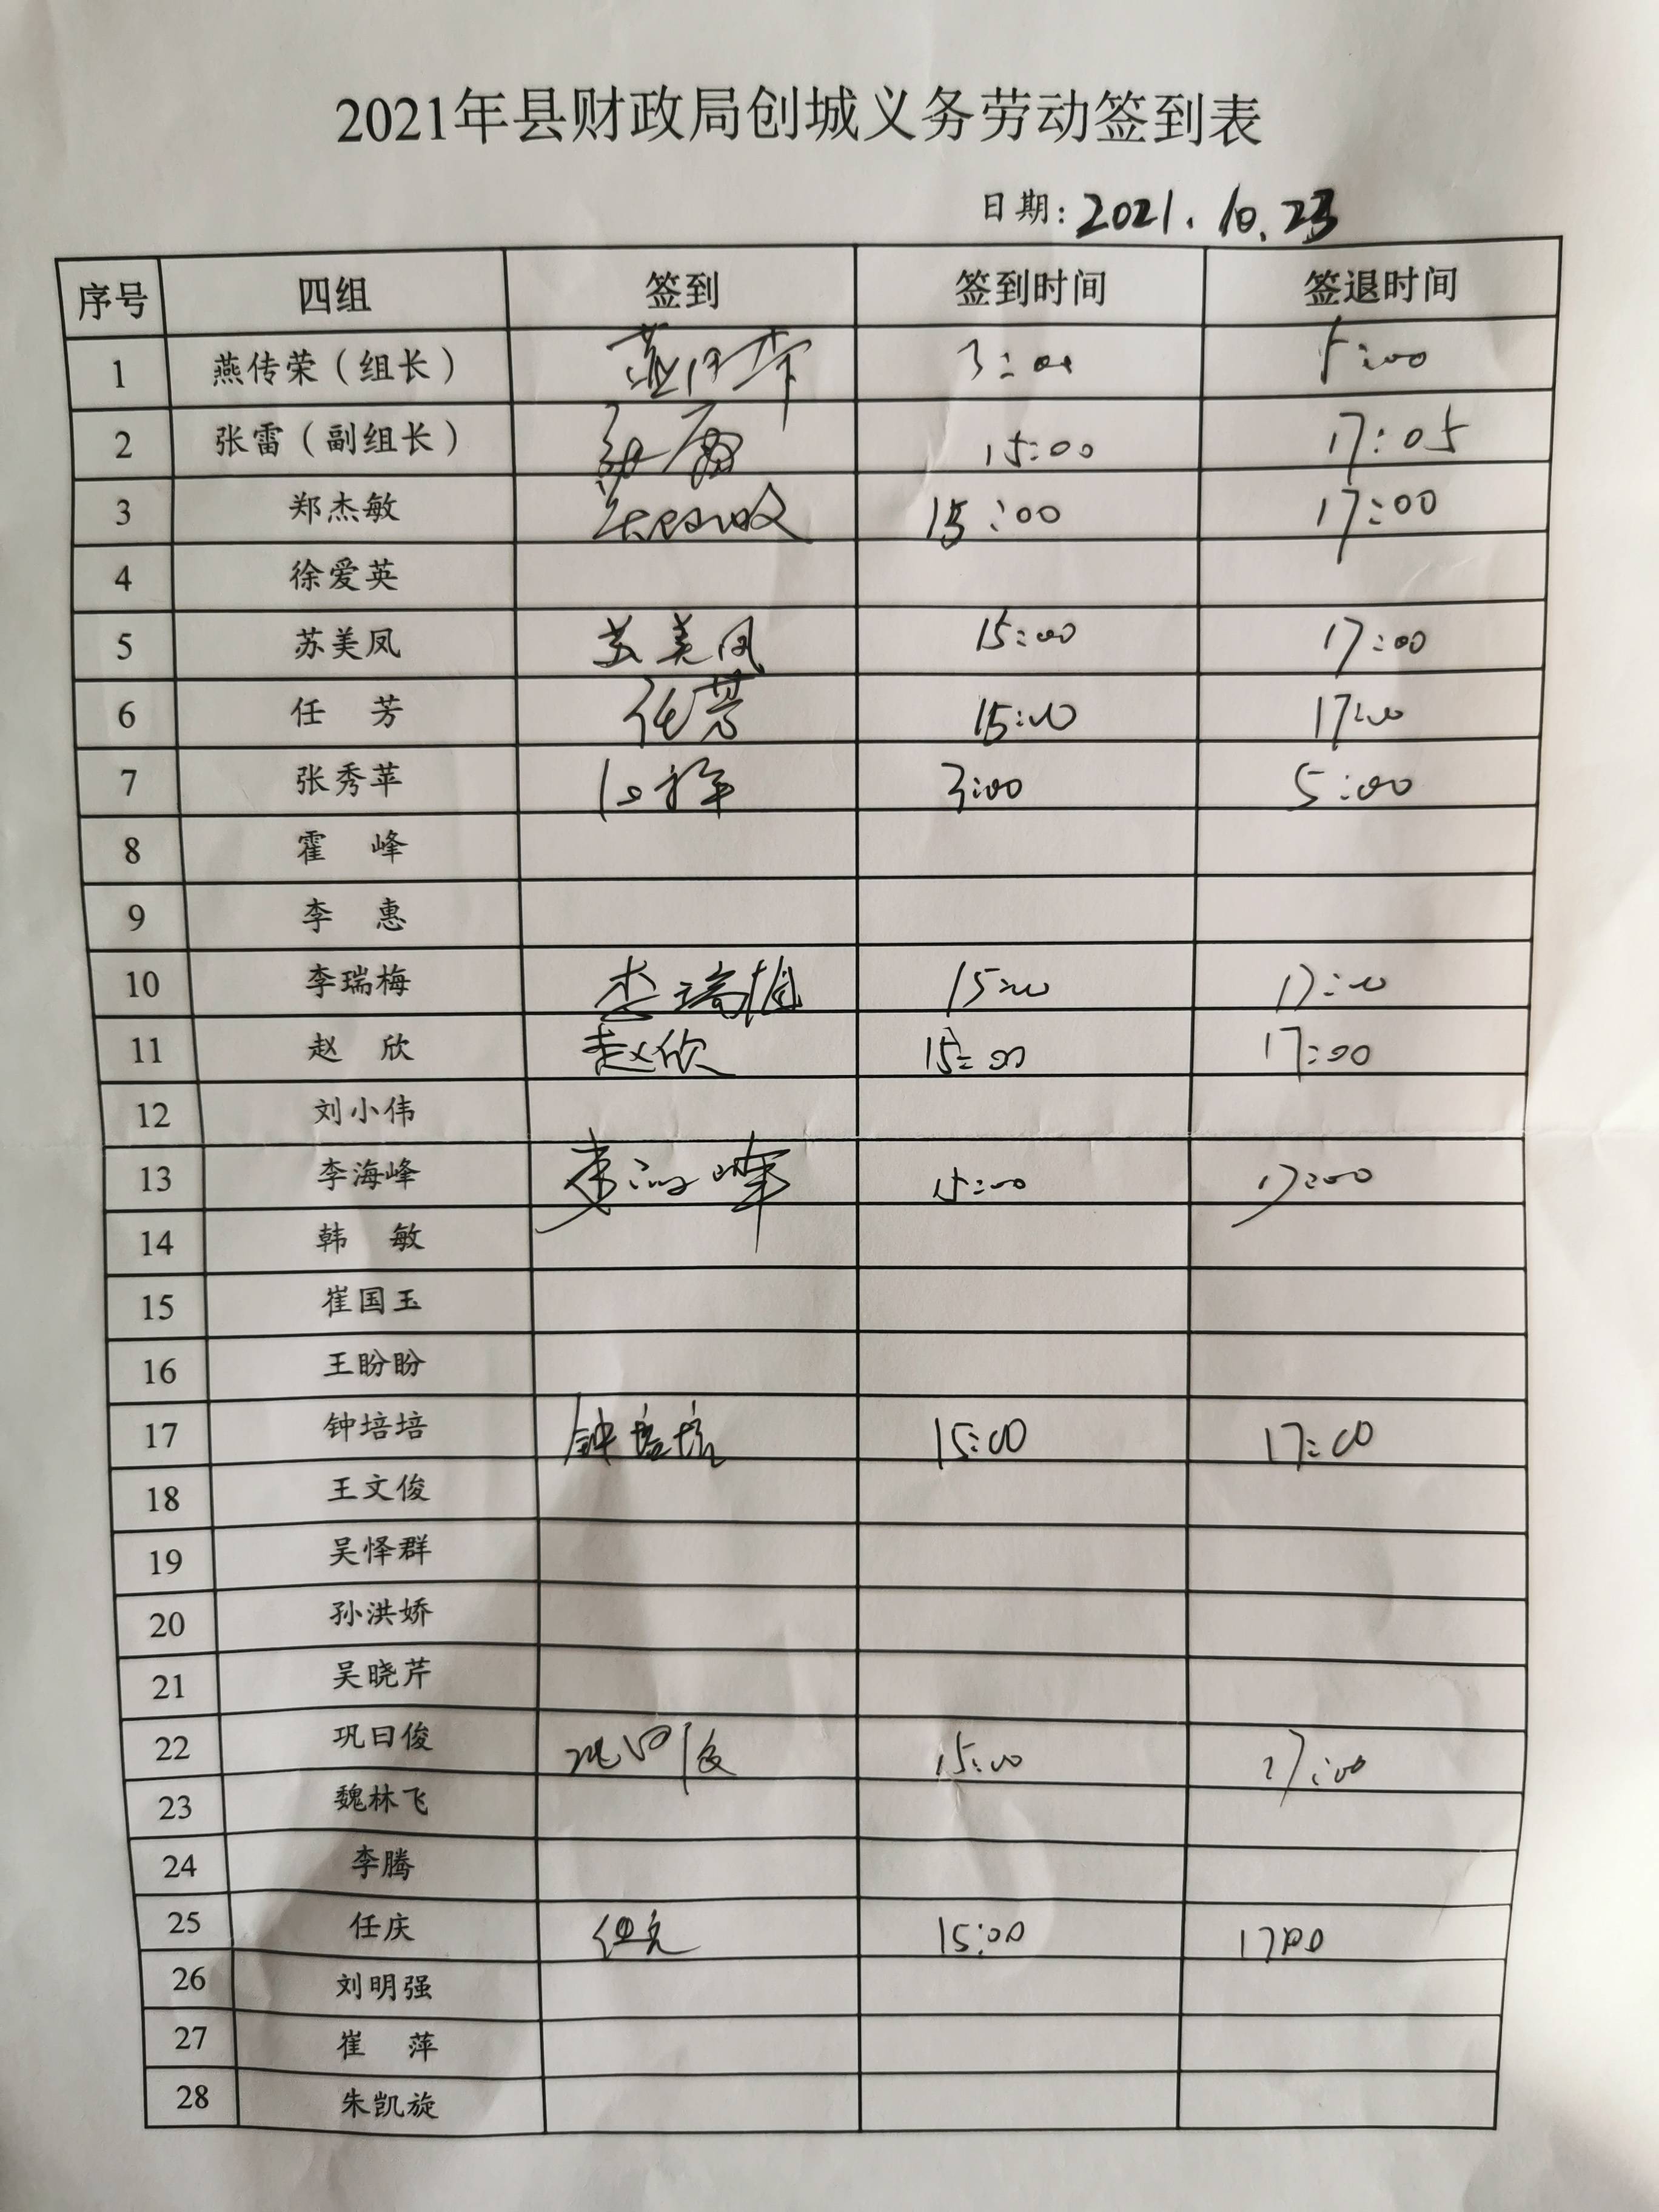 2021年县财政局创城义务劳动签到表
日期: 2021.10.23
序号 四组 签到 签到时间 签退时间
1 燕传荣（组长） 燕传荣 3:00 5:00
2 张雷（副组长） 张雷 15:00 17:05
3 郑杰敏 15:00 17:00
4 徐爱英
5 苏美凤 苏美凤 15:00 17:00
6 任 芳 任芳 15:00 17:00
7 张秀苹 3:00 5:00
8 霍 峰
9 李 惠
10 李瑞梅 李瑞梅 15:00 17:00
11 赵 欣 赵欣 15:00 17:00
12 刘小伟
13 李海峰 李海峰 15:00 17:00
14 韩 敏
15 崔国玉
16 王盼盼
17 钟培培 钟培培 15:00 17:00
18 王文俊
19 吴怿群
20 孙洪娇
21 吴晓芹
22 巩曰俊 巩曰俊 15:00 17:00
23 魏林飞
24 李腾
25 任庆 15:00 17:00
26 刘明强
27 崔 萍
28 朱凯旋